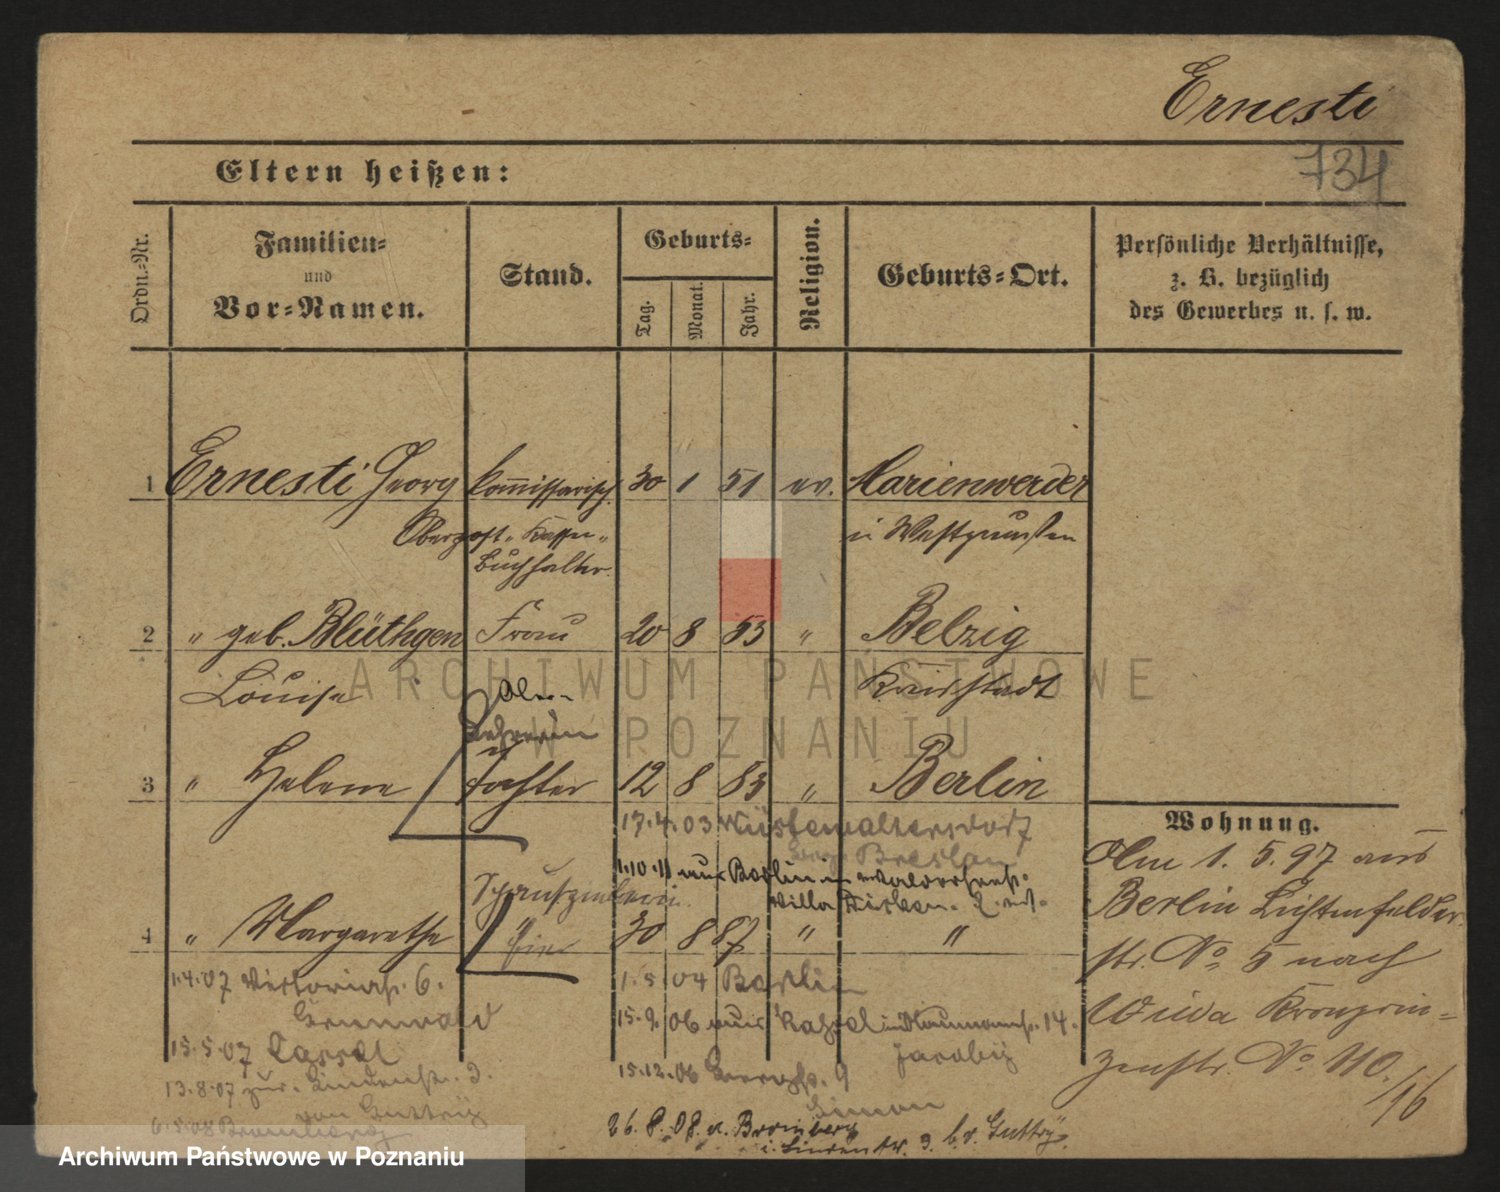 Ernesti
734
Eltern heißen:
Ordn.-Nr.
Familien-
und
Vor-Namen.
Stand.
Geburts-
Tag.
Monat.
Jahr.
Religion.
Geburts-Ort.
Persönliche Verhältnisse,
z. B. bezüglich
des Gewerbes u. s. w.
1 Ernesti Georg kommissarisch. 30 1 51 ev. Marienwerder
Oberpost-Kassen- i Westpreußen
Buchhalter
2 " geb. Blüthgen Frau 20 8 53 " Belzig
Louise Kreisstadt
Lehrerin
3 " Helene Tochter 12 8 83 " Berlin
17.4.03 Wüstewaltersdorf
Breslau
1.10.11 nach Berlin
Villa
4 " Margarethe " 30 8 87 " "
1.4.07 Victoriastr. 6.
Grunewald
15.5.07 Cassel
13.8.07 zur. Lindenstr. 3.
von Guttry
6.5.08 Bromberg
1.5.04 Berlin
15.9.06 aus Kassel 14.
15.12.06 9
26.8.08 n. Bromberg
i. Lindenstr. 3. b. v. Guttry.
Wohnung.
Am 1.5.97 aus
Berlin Lichterfelder
str. No 5 nach
Wilda Kronprin-
zenstr. No 110.
/16
ARCHIWUM PAŃSTWOWE
W POZNANIU
Archiwum Państwowe w Poznaniu